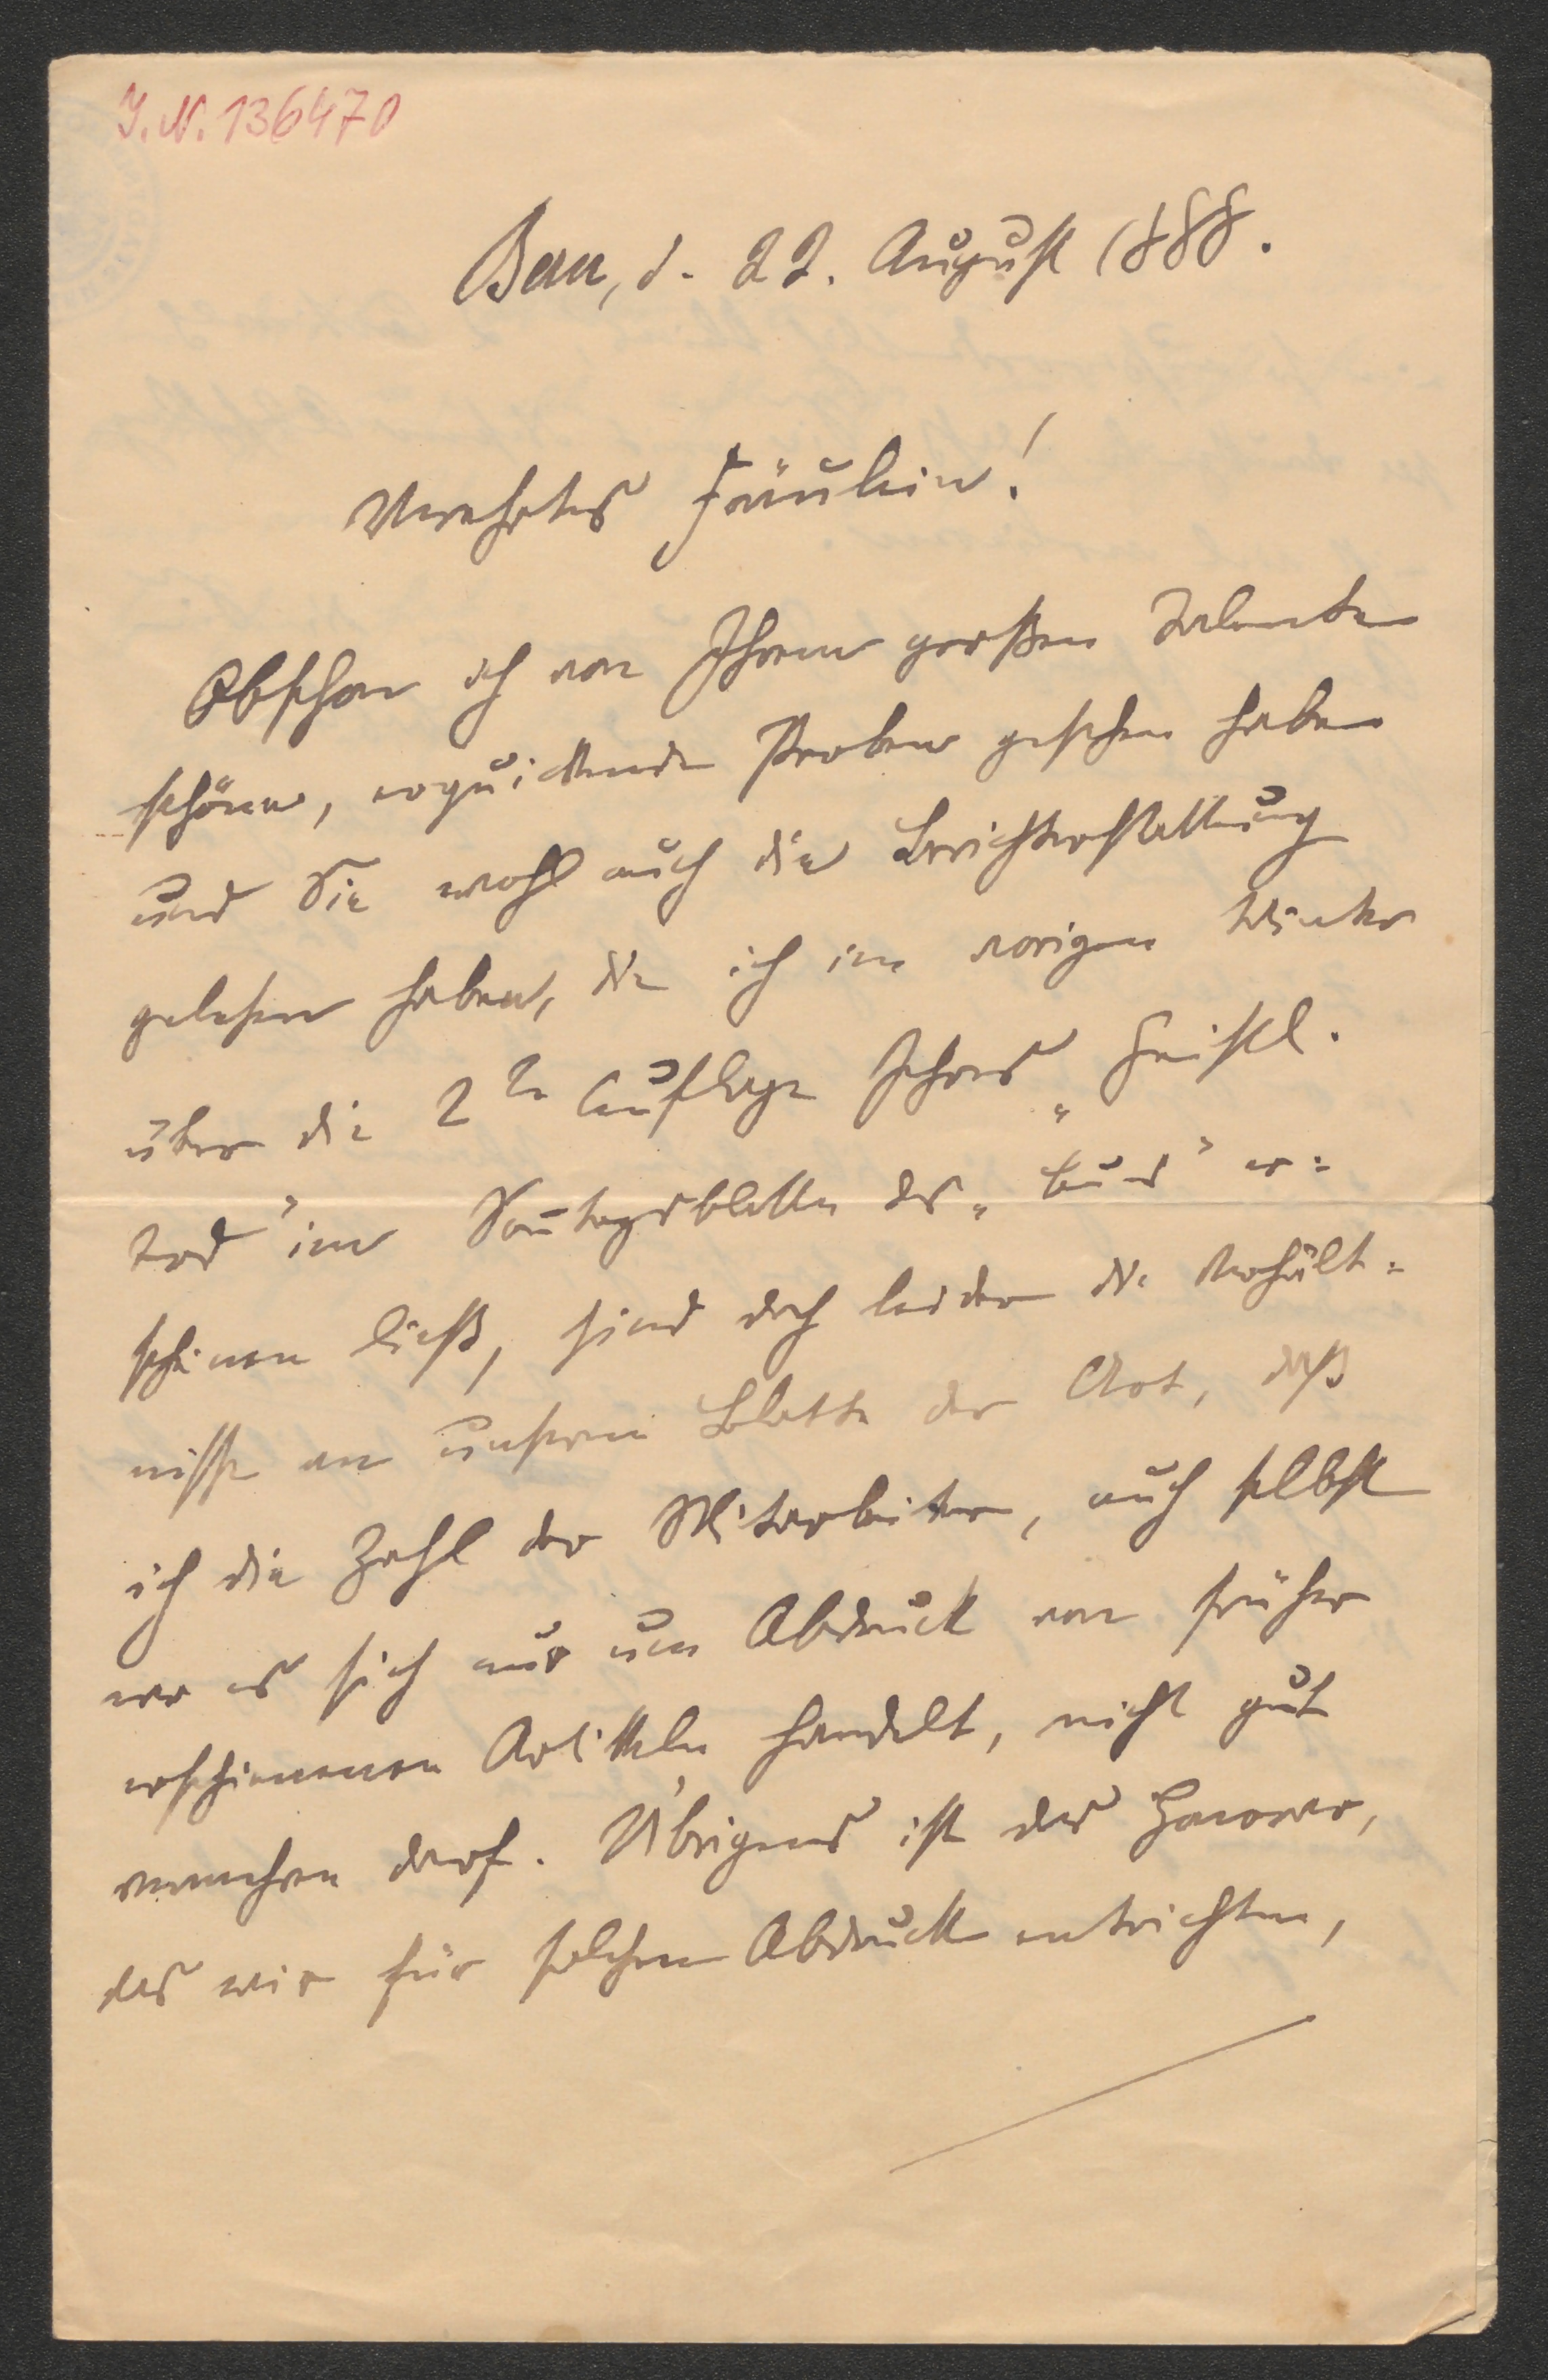 J. N. 136470
Bern, d. 22. August 1888.
Verehrtes Fräulein!
Obschon ich von Ihrem großen Talente
schöne, erquickende Proben gesehen habe
und Sie wohl auch die Berichterstattung
gelesen haben, die ich im vorigen Winter
über die 2te Auflage Ihres „
tod" im Sontagsblatte des „Bund" er=
scheinen ließ, sind doch leider die Verhält=
nisse an unserm Blatte der Art, daß
ich die Zahl der Mitarbeiter, auch selbst
wo es sich nur um Abdruck von früher
erschienenen Artikeln handelt, nicht gut
vermehren darf. Übrigens ist das Honorar,
das wir für solchen Abdruck entrichten,